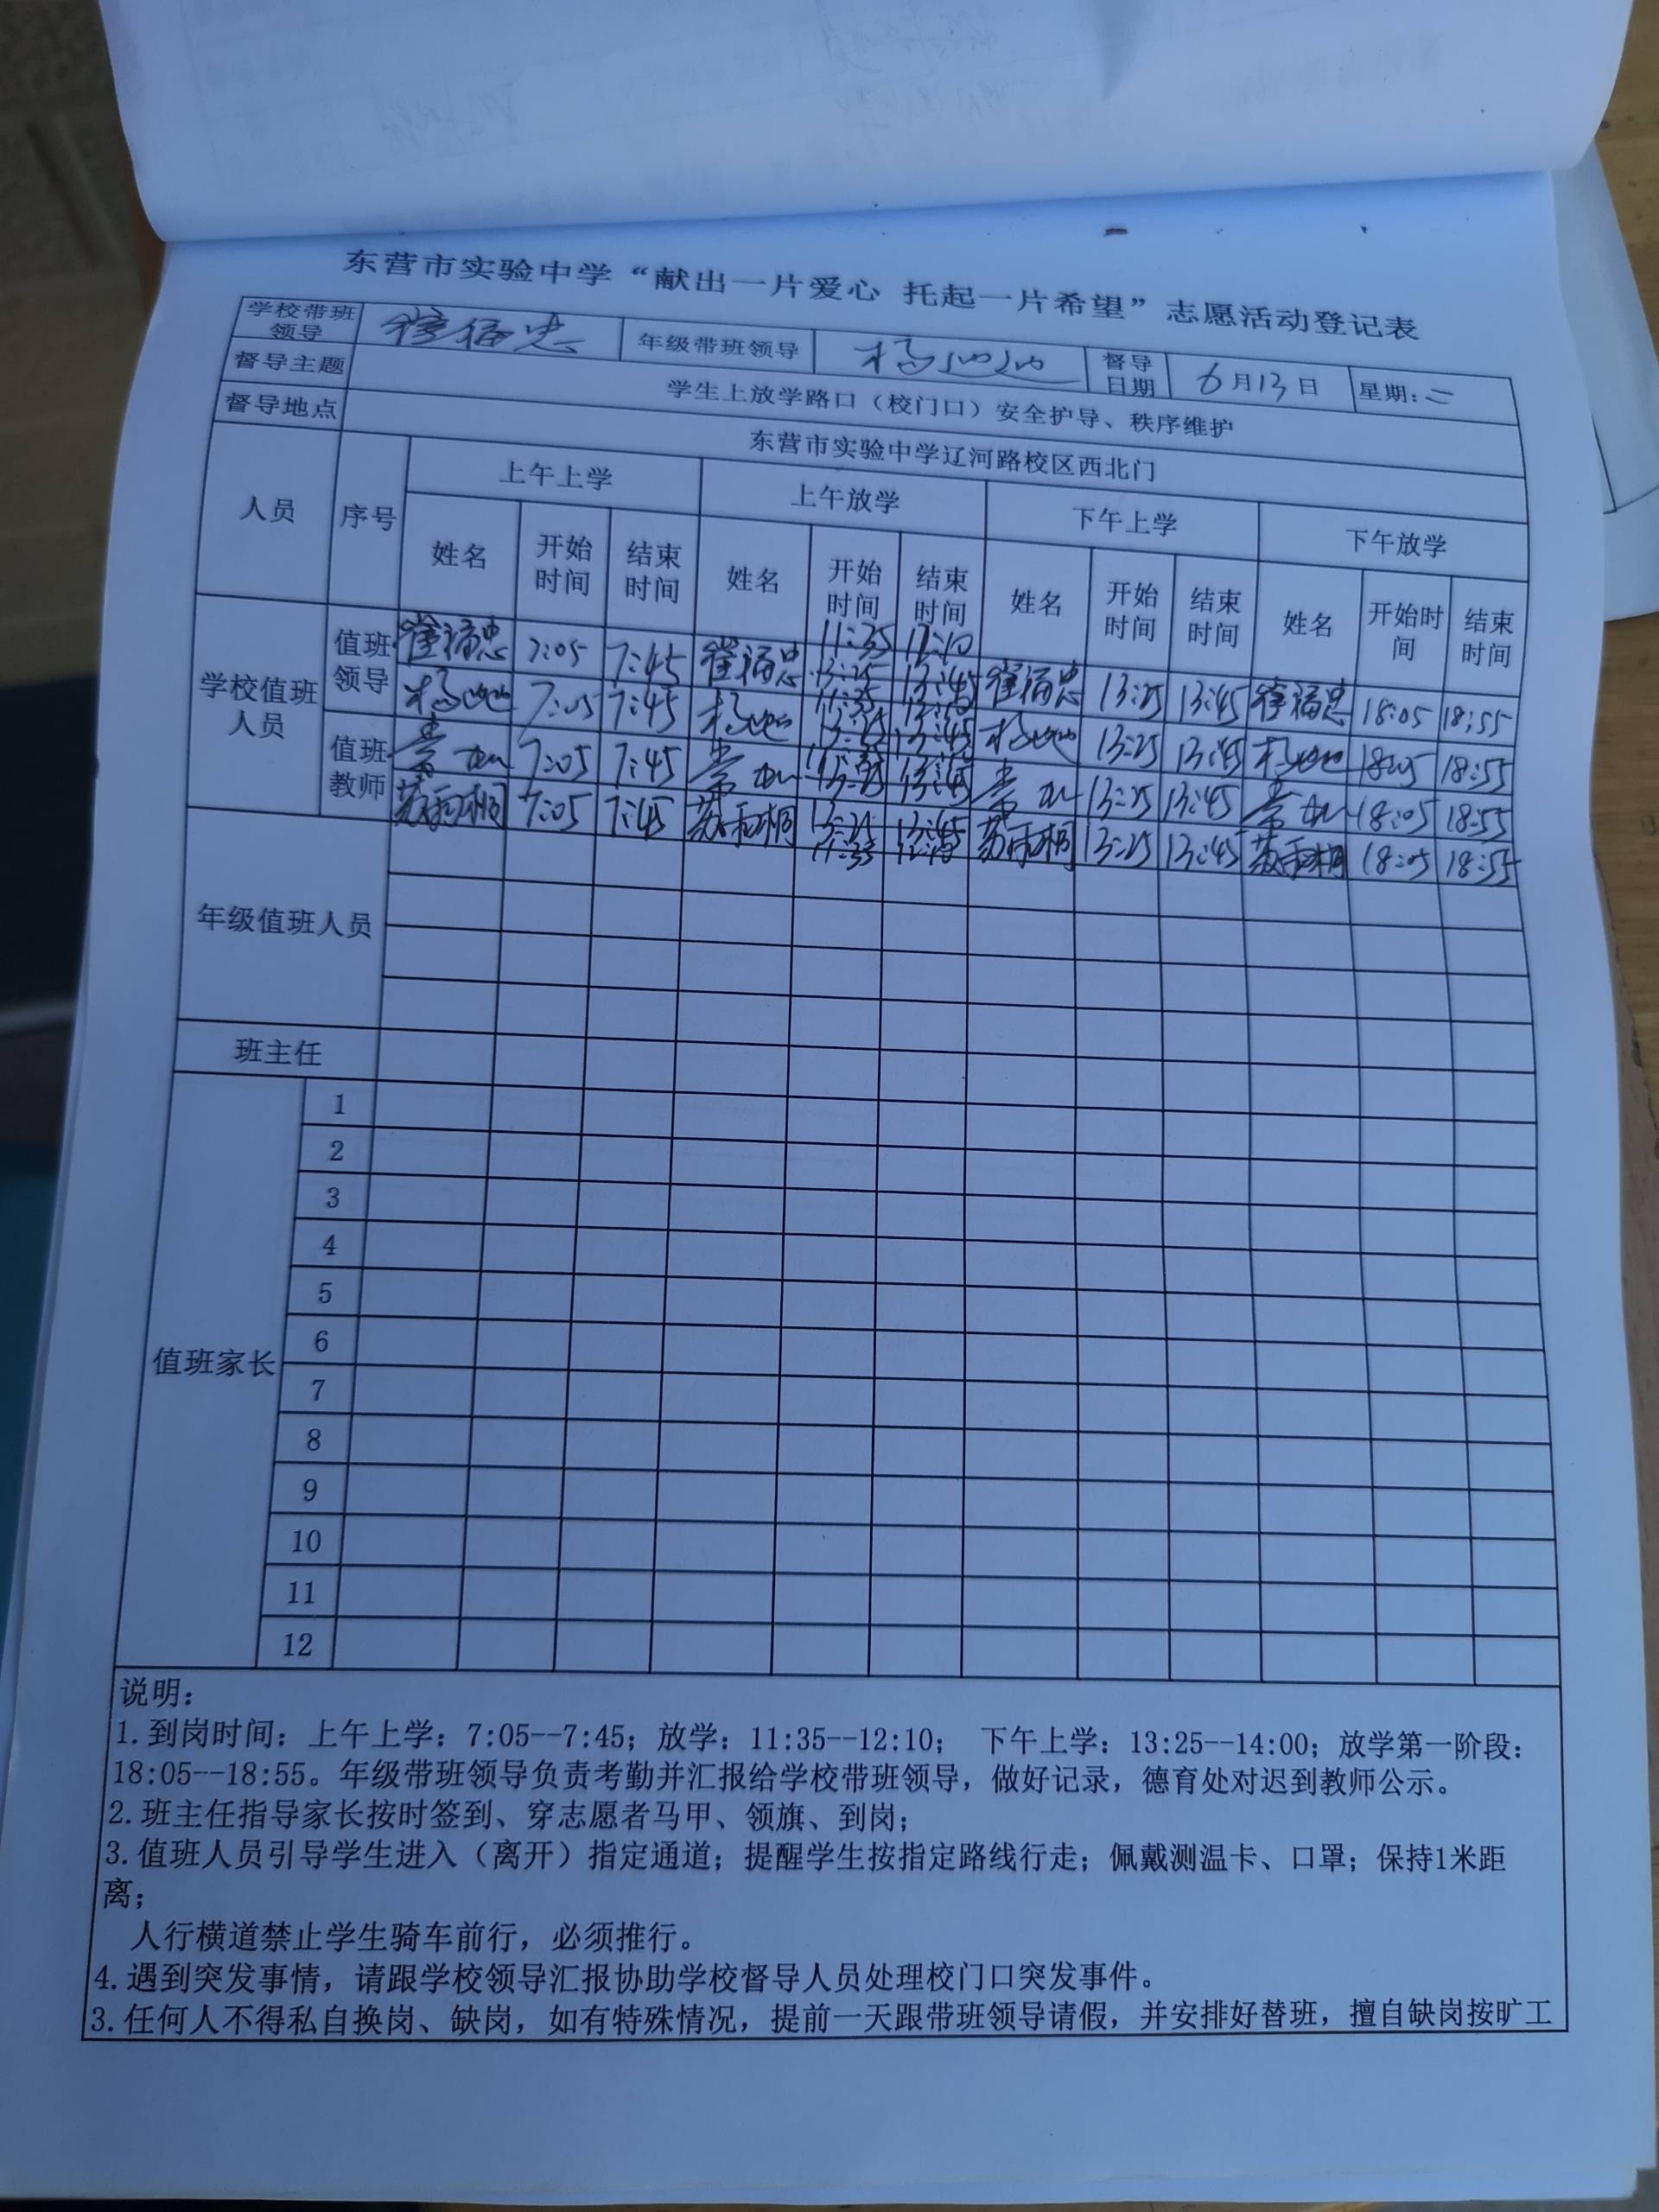 东营市实验中学“献出一片爱心 托起一片希望”志愿活动登记表
学校带班领导 崔福忠 年级带班领导 督导日期 6月13日 星期:二
督导主题 学生上放学路口（校门口）安全护导、秩序维护
督导地点 东营市实验中学辽河路校区西北门
人员 序号 上午上学 上午放学 下午上学 下午放学
姓名 开始时间 结束时间 姓名 开始时间 结束时间 姓名 开始时间 结束时间 姓名 开始时间 结束时间
学校值班人员
值班领导 崔福忠 7:05 7:45 崔福忠 11:35 12:10 13:25 13:45 崔福忠 13:25 13:45 崔福忠 18:05 18:55
7:05 7:45 11:35 13:25 13:45 13:25 13:45 18:05 18:55
值班教师 7:05 7:45 13:25 13:45 13:25 13:45 18:05 18:55
苏雨桐 7:05 7:45 苏雨桐 13:25 13:45 11:35 12:10 苏雨桐 13:25 13:45 苏雨桐 18:05 18:55
年级值班人员
班主任
值班家长
1
2
3
4
5
6
7
8
9
10
11
12
说明：
1.到岗时间：上午上学：7:05--7:45；放学：11:35--12:10； 下午上学：13:25--14:00；放学第一阶段：
18:05--18:55。年级带班领导负责考勤并汇报给学校带班领导，做好记录，德育处对迟到教师公示。
2.班主任指导家长按时签到、穿志愿者马甲、领旗、到岗；
3.值班人员引导学生进入（离开）指定通道；提醒学生按指定路线行走；佩戴测温卡、口罩；保持1米距
离；
人行横道禁止学生骑车前行，必须推行。
4.遇到突发事情，请跟学校领导汇报协助学校督导人员处理校门口突发事件。
3.任何人不得私自换岗、缺岗，如有特殊情况，提前一天跟带班领导请假，并安排好替班，擅自缺岗按旷工